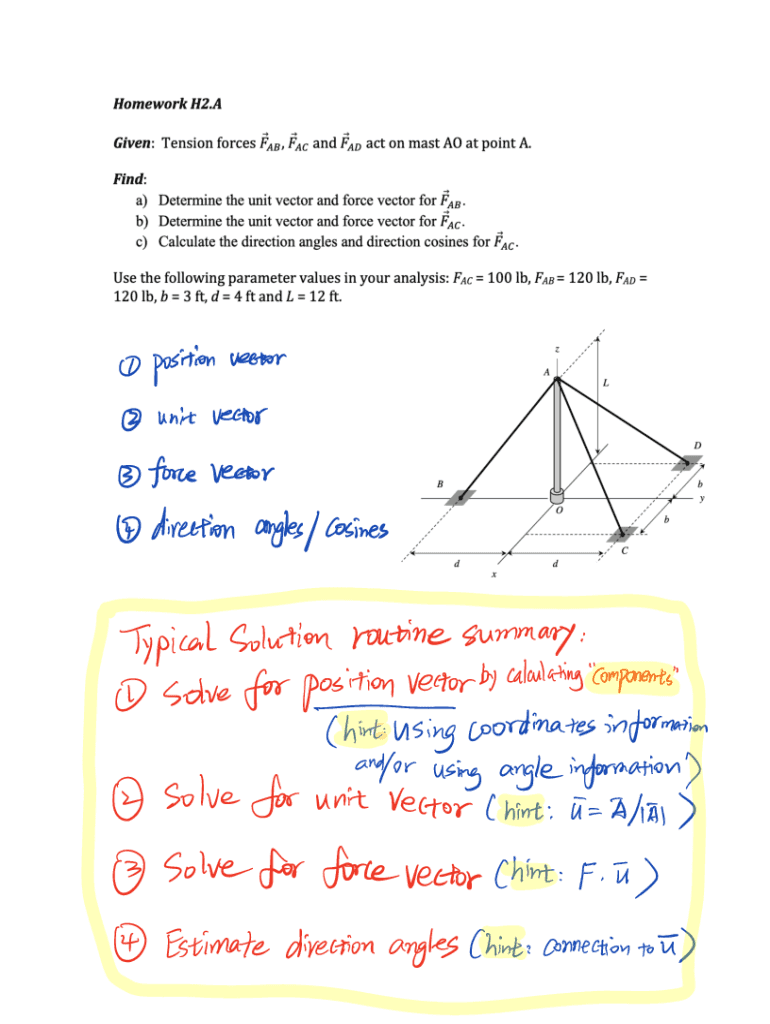 Homework H2.A
Given: Tension forces F⃗AB, F⃗AC and F⃗AD act on mast AO at point A.
Find:
a) Determine the unit vector and force vector for F⃗AB.
b) Determine the unit vector and force vector for F⃗AC.
c) Calculate the direction angles and direction cosines for F⃗AC.
Use the following parameter values in your analysis: FAC = 100 lb, FAB = 120 lb, FAD =
120 lb, b = 3 ft, d = 4 ft and L = 12 ft.
① position vector
② unit vector
③ force vector
④ direction angles / cosines
z
A
L
D
B
b
y
O
b
C
d
d
x
Typical Solution routine summary:
① Solve for position vector by calculating "components"
(hint: using coordinates information
and/or using angle information)
② Solve for unit vector (hint: ū = Ā/|Ā|)
③ Solve for force vector (hint: F. ū)
④ Estimate direction angles (hint: connection to ū)